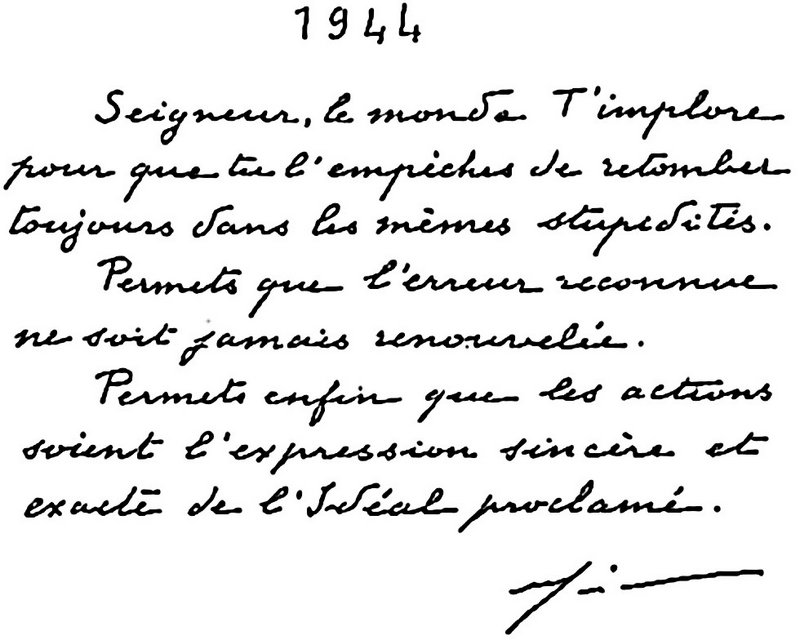 1944
Seigneur, le monde T'implore
pour que tu l'empêches de retomber
toujours dans les mêmes stupidités.
Permets que l'erreur reconnue
ne soit jamais renouvelée.
Permets enfin que les actions
soient l'expression sincère et
exacte de l'Idéal proclamé.